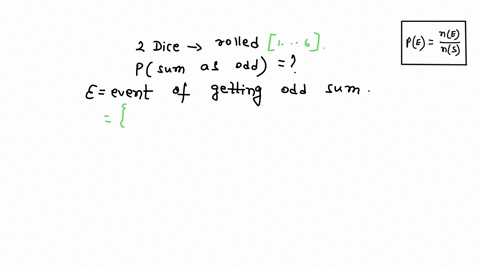 2 Dice → rolled [1...6].
P(sum as odd) = ?
E = event of getting odd sum.
= {
P(E) = n(E)/n(S)